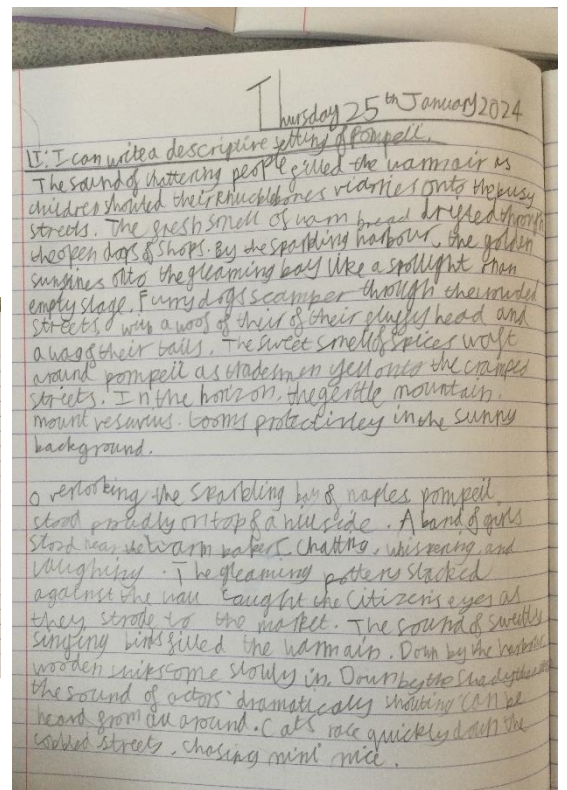 Thursday 25th January 2024
LI: I can write a descriptive setting of Pompeii.
The sound of chattering people filled the warm air as
children shouted their knucklebones victories onto the busy
streets. The fresh smell of warm bread drifted through
the open doors of shops. By the sparkling harbour, the golden
sun shines onto the gleaming bay like a spotlight on an
empty stage. Furry dogs scamper through the crowded
streets with a woof of their of their fluffy head and
a wag of their tails. The sweet smell of spices waft
around pompeii as tradesmen yell onto the cramped
streets. In the horizon, the gentle mountain,
mount vesuvius. Looms protectivley in the sunny
background.
overlooking the sparkling bay of naples pompeii
stood proudly on top of a hillside. A band of girls
stood near the warm bakers, chatting, whispering and
laughing. The gleaming pottery stacked
against the wall caught the citizens eyes as
they strode to the market. The sound of sweetly
singing birds filled the warm air. Down by the harbour
wooden ships come slowly in. Down by the shady
the sound of actors dramatically shouting can be
heard from all around. Cats race quickly down the
cobbled streets, chasing mini mice.